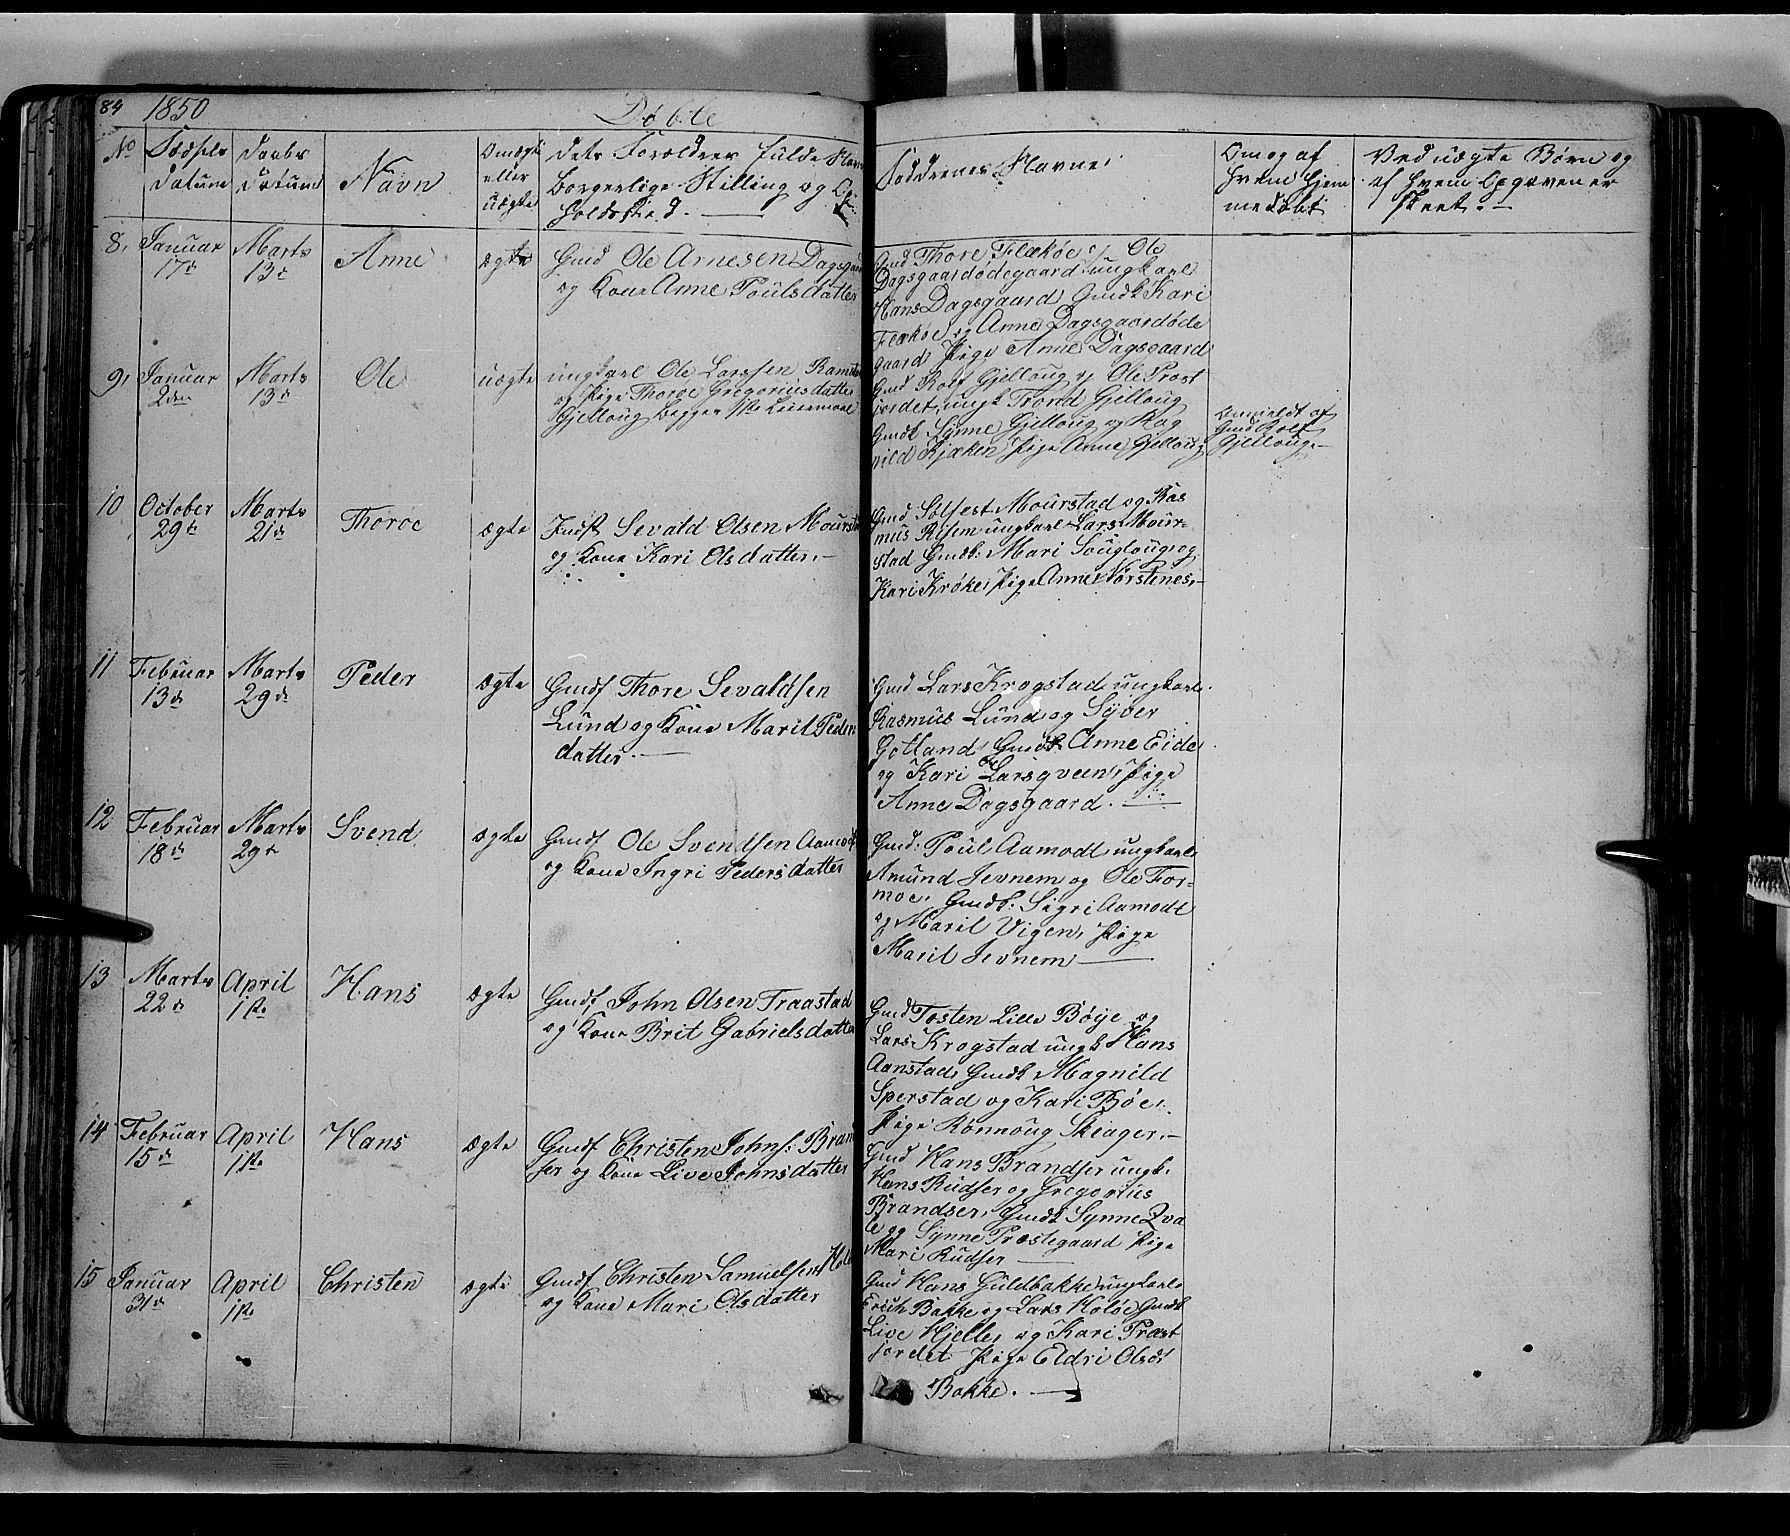 84 1850 Döbte
No
Födsels Datum
Daabs Datum
Navn
Om ægte eller uægte
Dets Forældres fulde Navn
borgerlige Stilling og Op-
holdssted.
Faddrenes Navne
Om og af
hvem hjem
medöbt
Ved uægte Börn og
af hvem Opgaven er
skeet.
8, Januar 17d Marts 13d Anne ægte
Gmd Ole Arnesen Dagsgaard
og Kone Anne Poulsdatter
Gmd Thore Flækøe og Ole
Dagsgaardødegaard, ungkarl
Hans Dagsgaard Gmdk Kari
Flækøe og Anne Dagsgaardøde
gaard, Pige Anne Dagsgaard
9, Januar 2den Marts 13d Ole uægte
ungkarl Ole Larssen Ramstad
og Pige Thoroe Gregoriusdatter
Gjelloug begges 1ste Leiermaal
Gmd Rolf Gjelloug og Ole Præst
jordet, ungk Trond Gjelloug
Gmdk Synne Gjelloug og Rag
nild Kjæken Pige Anne Gjelloug
Anmeldt af
Gmd Rolf
Gjelloug.
10 October 29d Marts 21d Thoroe ægte
Indst Sevald Olsen Mourstad
og Kone Kari Olsdatter.
Gmd Solfest Mourstad og Ras
mus Risem ungkarl Lars Mour-
stad Gmdk: Mari Souglougs og
Kari Kroke, Pige Anne Norstenes.
11 Februar 13d Marts 29d Peder ægte
Gmdf Thore Sevaldsen
Lund og Kone Marit Peders
datter.
Gmd Lars Krogstad, ungkarl
Rasmus Lund og Syver
Gotland, Gmdk Anne Eide
og Kari Larsqveen, Pige
Anne Dagsgaard.
12 Februar 18d Marts 29d Svend ægte
Gmdf Ole Svendsen Aamodt
og Kone Ingri Pedersdatter
Gmd: Poul Aamodt, ungkarl
Amund Jevnem og Ole For-
moe, Gmdk: Sigri Aamodt
og Marit Vigen, Pige
Marit Jevnem
13 Marts 22d April 1ste Hans ægte
Gmdf John Olsen Traastad
og Kone Brit Gabrielsdatter
Gmd Tosten Lille Böye og
Lars Krogstad ungk Hans
Aanstad, Gmdk Magnild
Sperstad og Kari Böe,
Pige Rönnoug Skiager.
14 Februar 15d April 1ste Hans ægte
Gmdf Christen Johns: Brand
ser og Kone Live Johnsdatter
Gmd Hans Brandser ungk.
Hans Rudser og Gregorius
Brandser, Gmdk Synne Qva
le og Synne Præstegaard Pige
Mari Rudser
15 Januar 31d April 1ste Christen ægte
Gmdf Christen Samuelsen Holö
og Kone Mari Olsdatter
Gmd Hans Guldbakke ungkarl
Erich Bakke og Lars Holöe Gmdk
Live Hjelle, og Kari Præst
jordet Pige Eldri Olsd:
Bakke.